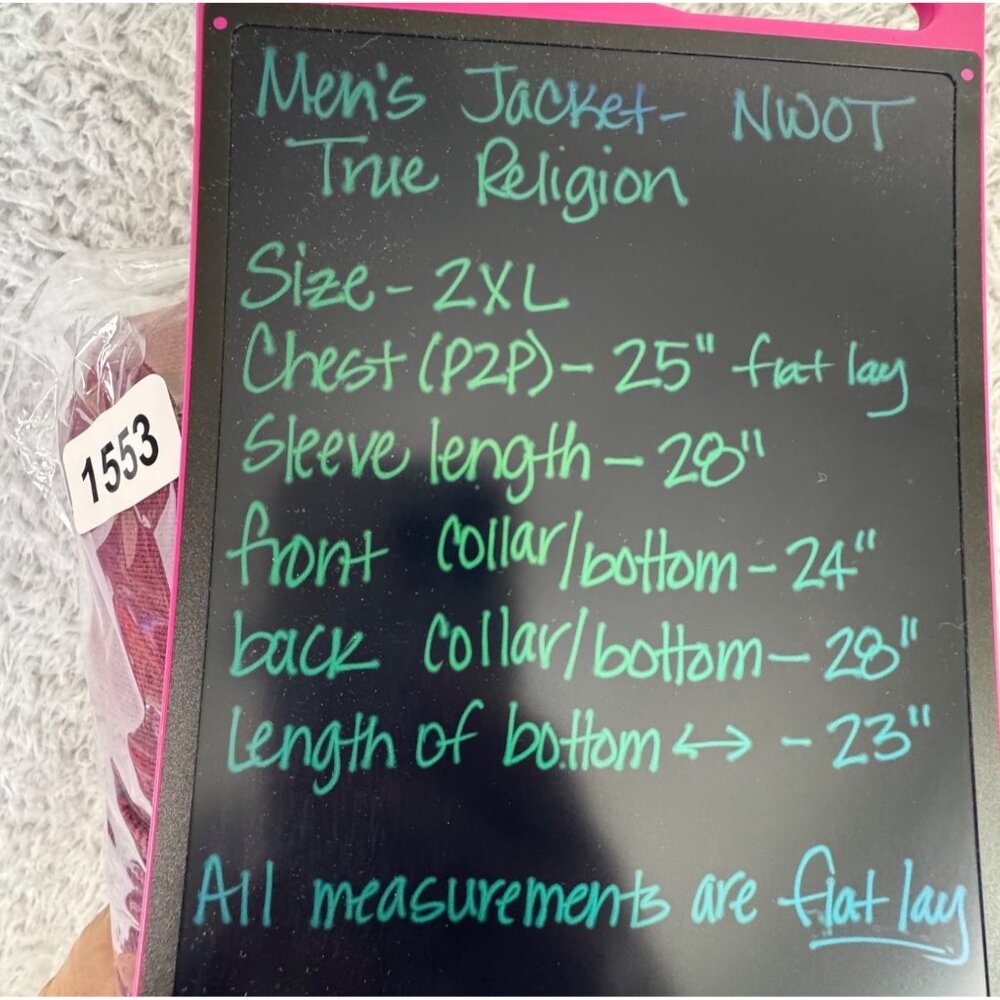 Men's Jacket- NWOT
True Religion
Size- 2XL
Chest (P2P)- 25" flat lay
Sleeve length- 28"
front collar/bottom- 24"
back collar/bottom- 28"
Length of bottom ↔ - 23"
All measurements are flat lay
1553